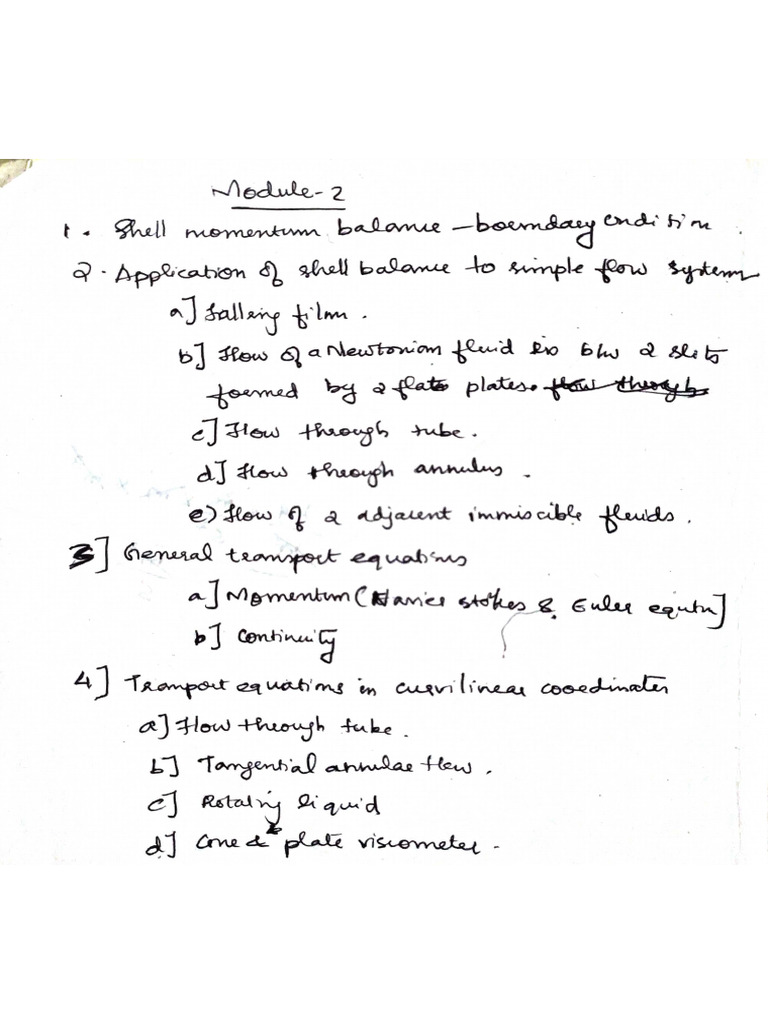 Module-2
1. Shell momentum balance – boundary condition.
2. Application of shell balance to simple flow system
a] falling film.
b] Flow of a Newtonian fluid in b/w 2 slits
formed by 2 flat plates. flow through
c] Flow through tube.
d] Flow through annulus.
e) flow of 2 adjacent immiscible fluids.
3] General transport equations
a] Momentum (Navier stokes & Euler equtn]
b] Continuity
4] Transport equations in curvilinear coordinates
a] Flow through tube.
b] Tangential annular flow.
c] Rotating liquid
d] Cone & plate viscometer.